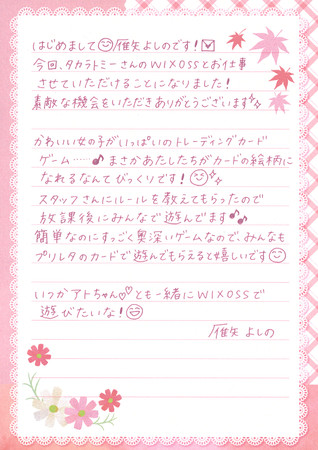 はじめまして😊雁矢よしのです!☑
今回、タカラトミーさんのWIXOSSとお仕事
させていただけることになりました!
素敵な機会をいただきありがとうございます✨
かわいい女の子がいっぱいのトレーディングカード
ゲーム……♪まさかあたしたちがカードの絵柄に
なれるなんてびっくりです!😊✨
スタッフさんにルールを教えてもらったので
放課後にみんなで遊んでます♪♪
簡単なのにすっごく奥深いゲームなので、みんなも
プリレタのカードで遊んでもらえると嬉しいです😊
いつかアトちゃん♡♡とも一緒にWIXOSSで
遊びたいな!😄
雁矢 よしの